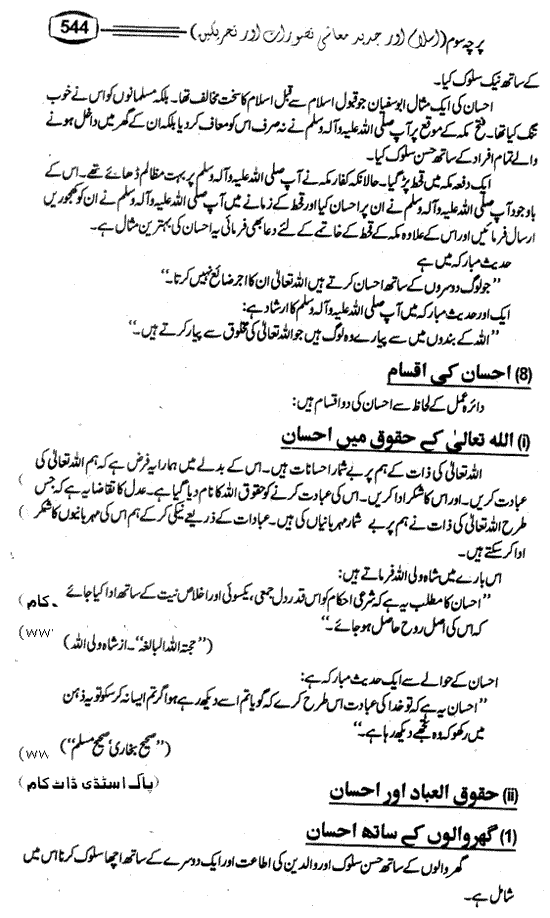 پرچہ سوم (اسلام اور جدید معاشی تصورات اور تحریکیں)
544
کے ساتھ نیک سلوک کیا۔
احسان کی ایک مثال ابوسفیان جو قبول اسلام سے قبل اسلام کا سخت مخالف تھا۔ بلکہ مسلمانوں کو اس نے خوب
تنگ کیا تھا۔ فتح مکہ کے موقع پر آپ صلی اللہ علیہ وآلہ وسلم نے نہ صرف اس کو معاف کر دیا بلکہ ان کے گھر میں داخل ہونے
والے تمام افراد کے ساتھ حسن سلوک کیا۔
ایک دفعہ مکہ میں قحط پڑ گیا۔ حالانکہ کفار مکہ نے آپ صلی اللہ علیہ وآلہ وسلم پر بہت مظالم ڈھائے تھے۔ اس کے
باوجود آپ صلی اللہ علیہ وآلہ وسلم نے ان پر احسان کیا اور قحط کے زمانے میں آپ صلی اللہ علیہ وآلہ وسلم نے ان کو کھجوریں
ارسال فرمائیں اور اس کے علاوہ مکہ کے قحط کے خاتمے کے لئے دعا بھی فرمائی یہ احسان کی بہترین مثال ہے۔
حدیث مبارکہ میں ہے
”جو لوگ دوسروں کے ساتھ احسان کرتے ہیں اللہ تعالیٰ ان کا اجر ضائع نہیں کرتا۔“
ایک اور حدیث مبارکہ میں آپ صلی اللہ علیہ وآلہ وسلم کا ارشاد ہے:
”اللہ کے بندوں میں سے پیارے وہ لوگ ہیں جو اللہ تعالیٰ کی مخلوق سے پیار کرتے ہیں۔“
(8) احسان کی اقسام
دائرہ عمل کے لحاظ سے احسان کی دو اقسام ہیں:
(i) اللہ تعالیٰ کے حقوق میں احسان
اللہ تعالیٰ کی ذات کے ہم پر بے شمار احسانات ہیں۔ اس کے بدلے میں ہمارا یہ فرض ہے کہ ہم اللہ تعالیٰ کی
عبادت کریں۔ اور اس کا شکر ادا کریں۔ اس کی عبادت کرنے کو حقوق اللہ کا نام دیا گیا ہے۔ عدل کا تقاضا یہ ہے کہ جس (
طرح اللہ تعالیٰ کی ذات نے ہم پر بے شمار مہربانیاں کی ہیں۔ عبادات کے ذریعے نیکی کر کے ہم اس کی مہربانیوں کا شکر (
ادا کر سکتے ہیں۔
اس بارے میں شاہ ولی اللہ فرماتے ہیں:
”احسان کا مطلب یہ ہے کہ شرعی احکام کو اس قدر دل جمعی، یکسوئی اور اخلاص نیت کے ساتھ ادا کیا جائے ۔ کام (
کہ اس کی اصل روح حاصل ہو جائے۔“
(ww
(”حجتہ اللہ البالغہ“۔ از شاہ ولی اللہ)
احسان کے حوالے سے ایک حدیث مبارکہ ہے:
”احسان یہ ہے کہ تو خدا کی عبادت اس طرح کرے کہ گویا تم اسے دیکھ رہے ہو اگر تم ایسا نہ کر سکو تو یہ ذہن
میں رکھو کہ وہ تجھے دیکھ رہا ہے۔“
(”صحیح بخاری، صحیح مسلم“)
(ww
(پاک اسٹڈی ڈاٹ کام)
(ii) حقوق العباد اور احسان
(1) گھر والوں کے ساتھ احسان
گھر والوں کے ساتھ حسن سلوک اور والدین کی اطاعت اور ایک دوسرے کے ساتھ اچھا سلوک کرنا اس میں
شامل ہے۔